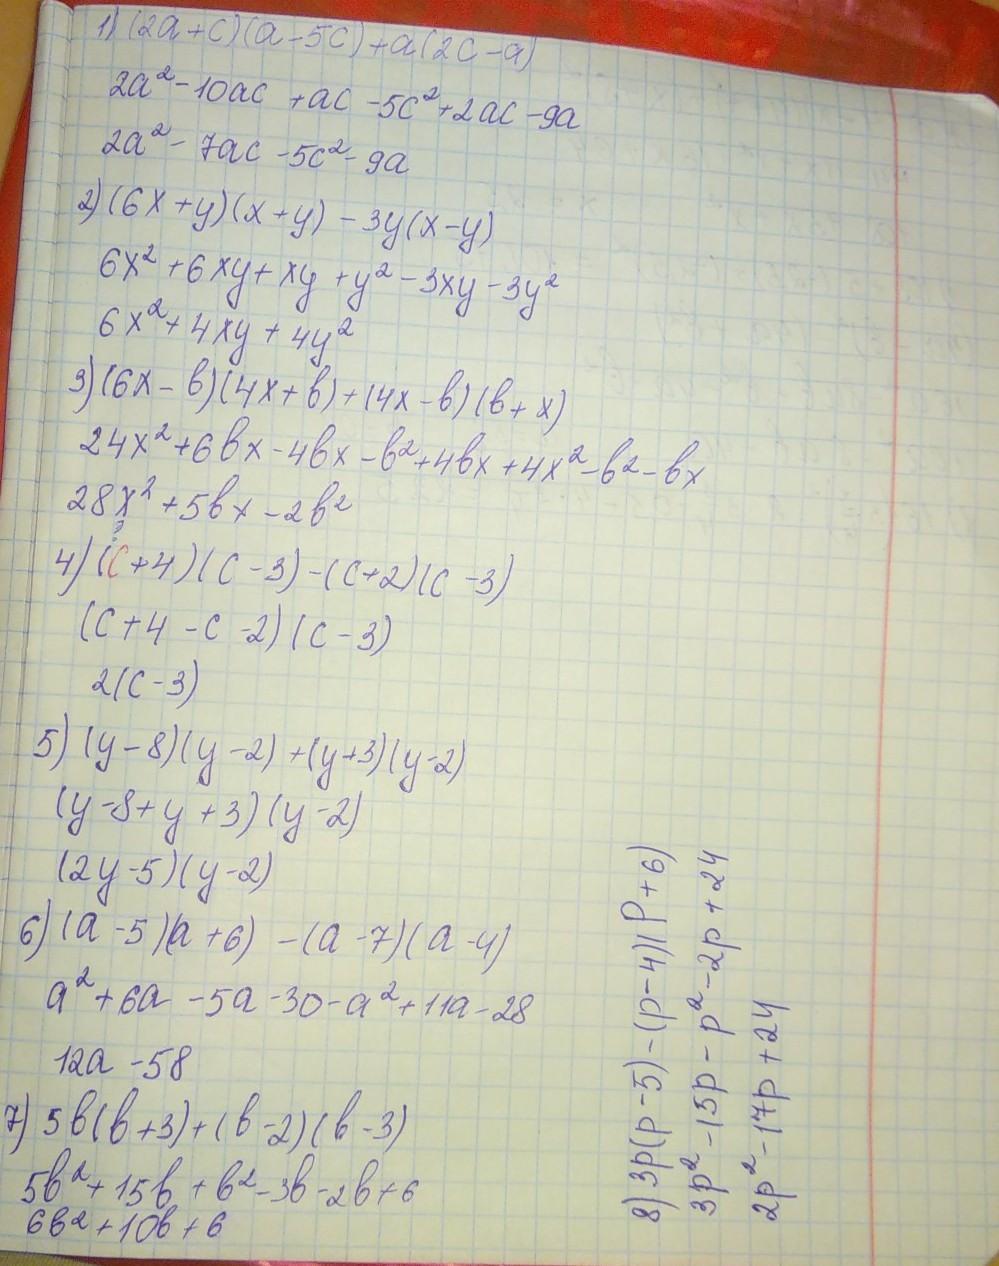 1) (2a+c)(a-5c)+a(2c-a)
2a²-10ac +ac -5c²+2ac -9a
2a²- 7ac -5c²- 9a
2) (6x+y)(x+y) -3y(x-y)
6x²+6xy+xy +y²-3xy-3y²
6x²+4xy+4y²
3) (6x-b)(4x+b)+(4x-b)(b+x)
24x²+6bx-4bx-b²+4bx+4x²-b²-bx
28x²+5bx-2b²
4) (c+4)(c-3)-(c+2)(c-3)
(c+4-c-2)(c-3)
2(c-3)
5) (y-8)(y-2)+(y+3)(y-2)
(y-8+y+3)(y-2)
(2y-5)(y-2)
6) (a-5)(a+6) -(a-7)(a-4)
a²+6a -5a-30-a²+11a-28
12a-58
7) 5b(b+3)+(b-2)(b-3)
5b²+15b+b²-3b-2b+6
6b²+10b+6
8) 3p(p-5)-(p-4)(p+6)
3p²-15p-p²-2p+24
2p²-17p+24